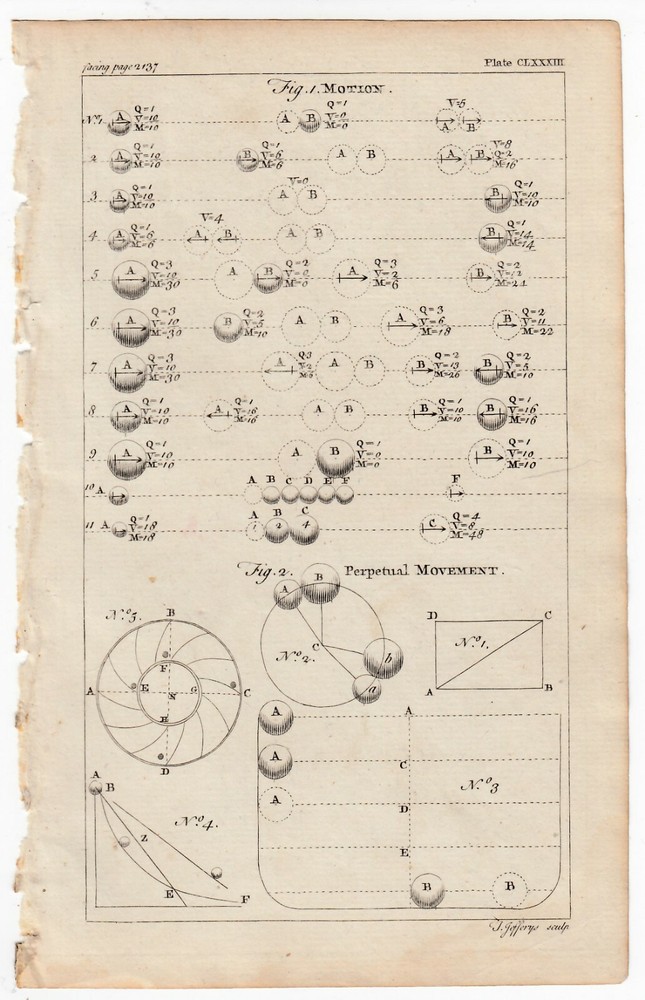 facing page 2137 Plate CLXXXIII
Fig. 1. MOTION.
Nº. 1 A Q=1 V=10 M=10 B Q=1 V=0 M=0 V=5 A B
2 A Q=1 V=10 M=10 B Q=1 V=6 M=6 A B A B V=8 Q=2 M=16
3 A Q=1 V=10 M=10 V=0 A B B Q=1 V=10 M=10
4 A Q=1 V=6 M=6 V=4 A B A B A Q=1 V=14 M=14
5 A Q=3 V=10 M=30 A B Q=2 V=0 M=0 A Q=3 V=2 M=6 B Q=2 V=12 M=24
6 A Q=3 V=10 M=30 B Q=2 V=5 M=10 A B A Q=3 V=6 M=18 B Q=2 V=11 M=22
7 A Q=3 V=10 M=30 A Q3 A B B Q=2 V=13 M=26 B Q=2 V=5 M=10
8 A Q=1 V=10 M=10 A Q=1 V=16 M=16 A B B Q=1 V=10 M=10 B Q=1 V=16 M=16
9 A Q=1 V=10 M=10 A B Q=1 V=0 M=0 B Q=1 V=10 M=10
10 A A B C D E F F
11 A Q=1 V=18 M=18 A B C 1 2 4 C Q=4 V=8 M=48
Fig. 2. Perpetual MOVEMENT.
Nº. 5 B A F E N G C D
Nº. 2. A B C b a
Nº. 1. D C A B
Nº. 4. A B Z E F
Nº. 3 A A A A C D E B B
T. Jefferys sculp